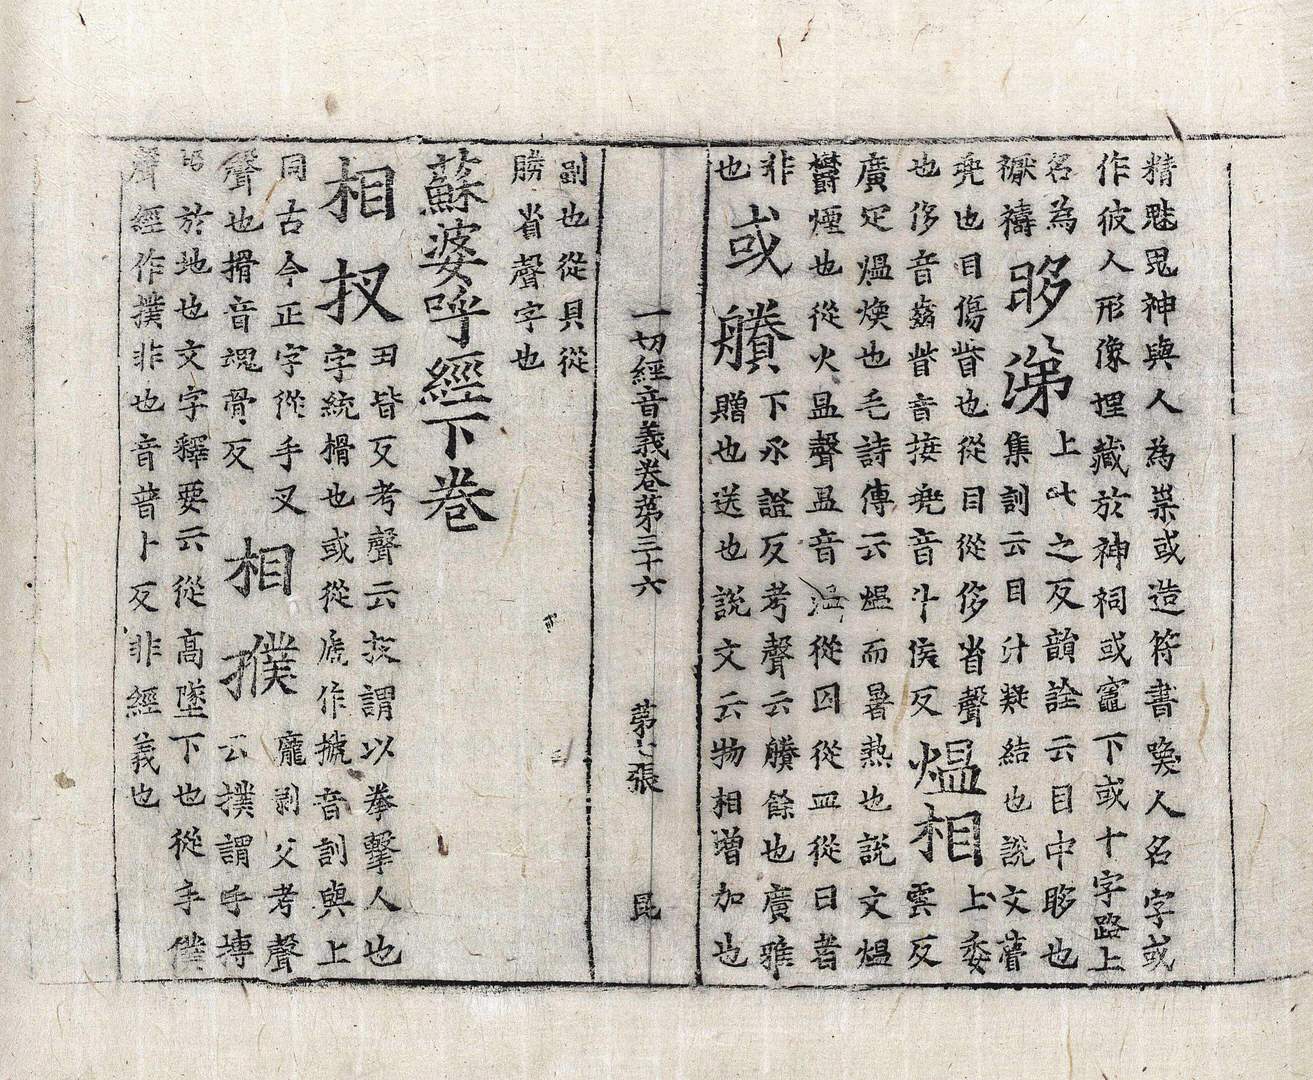 精魅鬼神與人為祟或造符書喚人名字或
作彼人形像埋藏於神祠或竈下或十字路上
名為
禳禱
眵
涕
上叱之反韻詮云目中眵也
集訓云目汁凝結也說文瞢
兠也目傷眥也從目從侈省聲
也侈音齒眥音接兠音斗侯反
熅相
上委
雲反
廣疋熅煗也毛詩傳云熅而暑熱也說文熅
鬱煙也從火昷聲昷音溫從囚從皿從日者
非
也
或
賸
下承證反考聲云賸餘也廣雅
贈也送也說文云物相增加也
一切經音義卷第三十六 第七張 昆
副也從貝從
勝省聲字也
蘇婆呼經下卷
相扠
丑皆反考聲云扠謂以拳擊人也
字統㨰也或從虒作搋音訓與上
同古今正字從手叉
聲也搰音魂骨反
相撲
龐剥父考聲
云撲謂手搏
於地也文字釋要云從高墜下也從手僕
聲經作撲非也音普卜反非經義也